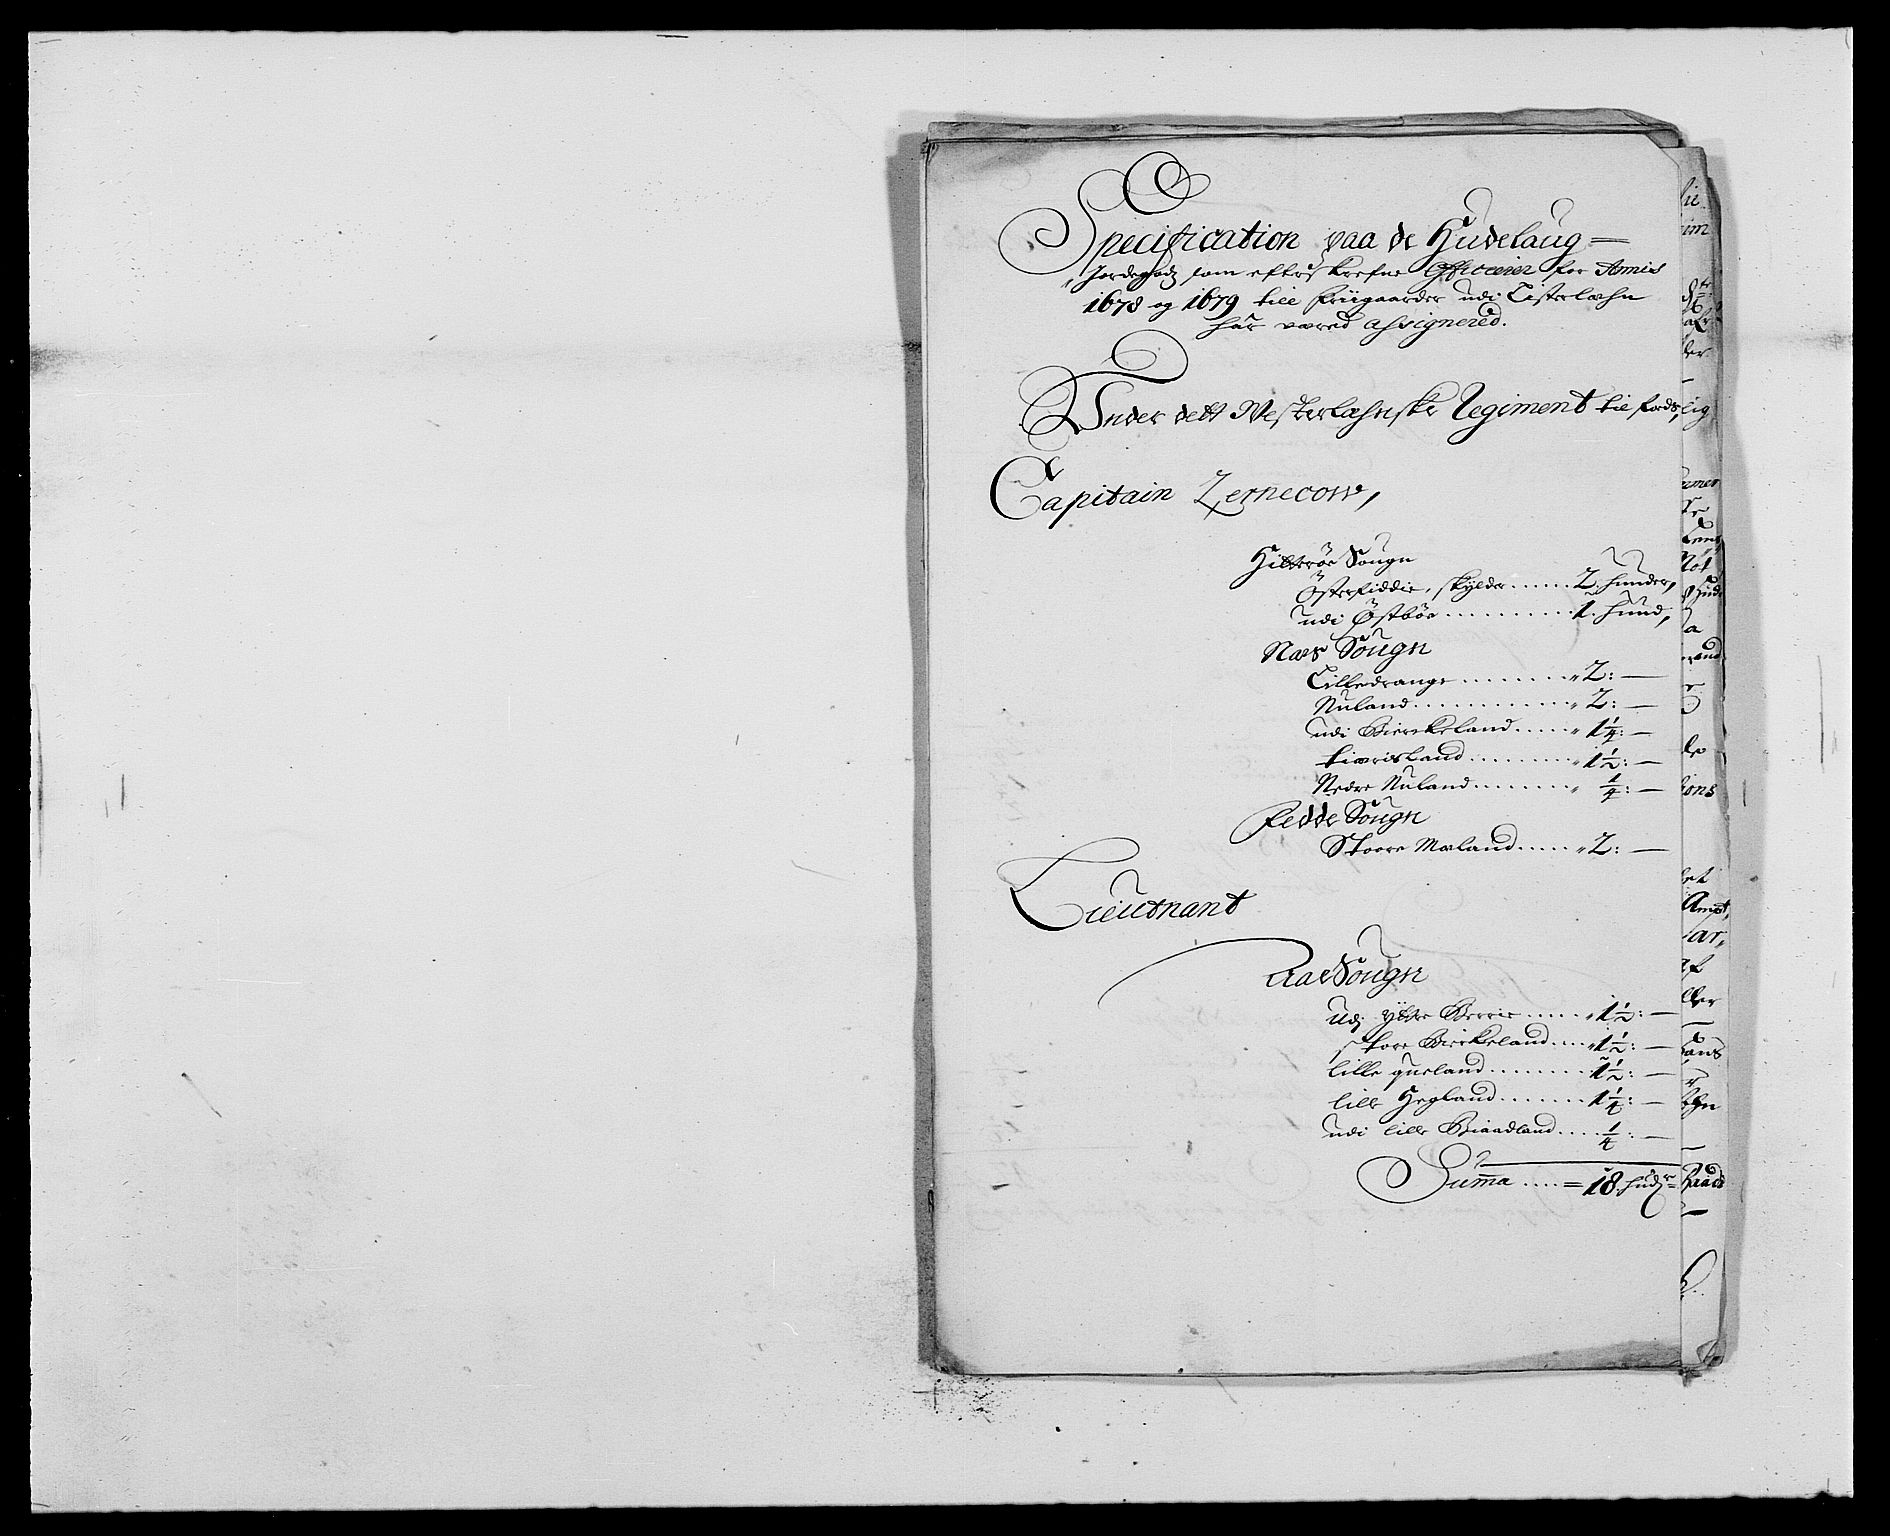 Specification paa de Hudelaug
Jordegodz som efterskrefne Officerer for Annis
1678 og 1679 till friigaarder udi Listerlæhn
har væred assignered.
Under dett Westerlæhnske Regiment til fods,
Capitain Zernecow,
Hitterøe Sougn
Østerfiddie, skylder ...... 2. hunder,
udi Østbøe .......... 1. hund,
Næs Sougn
Lilledrange ......... 2: —
Nuland ............. 2: —
udi Bierckeland ...... 1 1/4: —
.......... 1 1/2: —
Nedre Nuland ......... 1/4: —
Fedde Sougn
Stoore Mæland ..... 2: —
Lieutnant
Aae Sougn
Udj ytre Berrie ...... 1 1/2: —
store Bierkeland .... 1 1/2: —
lille queland ........ 1 1/2: —
lille Hegland ....... 1 1/4: —
udi lille Biaadland .... 1/4: —
Summa .... = 18. hudr